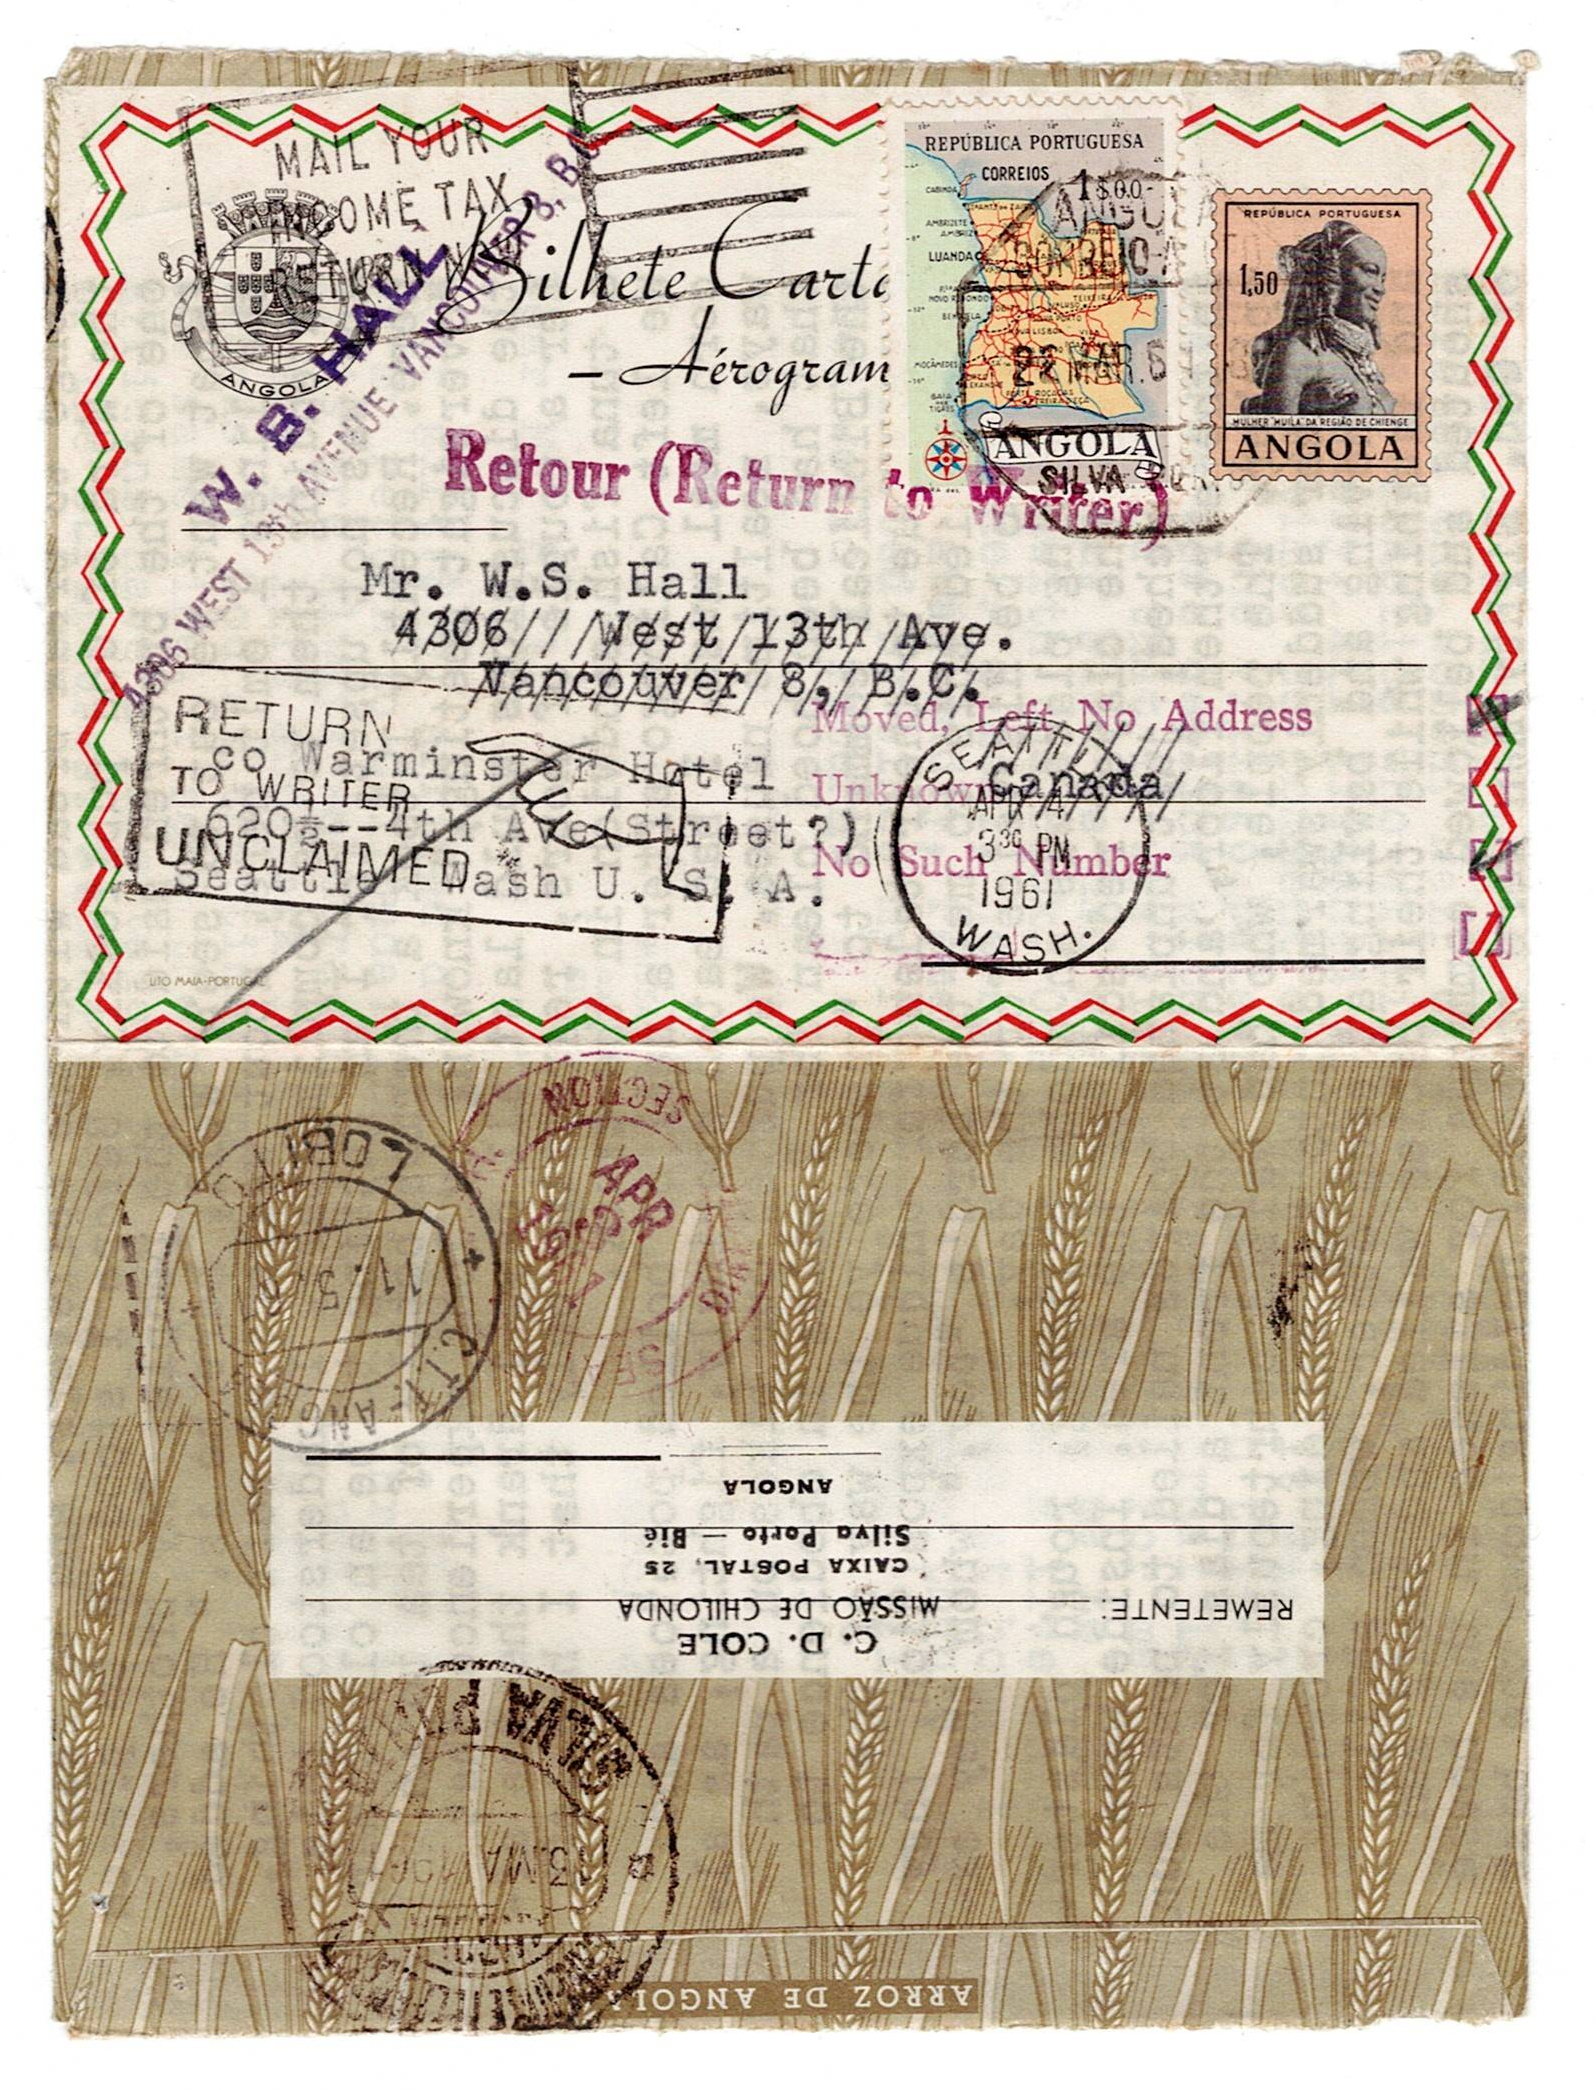 MAIL YOUR
COME TAX
TURN
ANGOLA
Bilhete Carta
— Aérogram
W. B. HALL
4306 WEST 13th AVENUE VANCOUVER 8, B.C
REPÚBLICA PORTUGUESA
CORREIOS
1$00
CABINDA
AMBRIZETE
AMBRIZ
LUANDA
ANGOLA
REPÚBLICA PORTUGUESA
1,50
MULHER MUILA DA REGIÃO DE CHIENGE
ANGOLA
ANGOLA
CORREIO
22 MAR. 61
SILVA PORTO
Retour (Return to Writer)
Mr. W.S. Hall
4306 West 13th Ave.
Vancouver 8, B.C.
Canada
co Warminster Hotel
620½--4th Ave(Street?)
Seattle Wash U. S. A.
RETURN
TO WRITER
UNCLAIMED
Moved, Left No Address
Unknown
No Such Number
SEATTLE
APR 4
3 30 PM
1961
WASH.
LITO MAIA-PORTUGAL
SECTION
APR
1961
LOBITO
11. 3.
C.T.T.-ANG
ANGOLA
Silva Porto — Bié
CAIXA POSTAL, 25
MISSÃO DE CHILONDA
REMETENTE:
C. D. COLE
SILVA PORTO
ARROZ DE ANGOLA